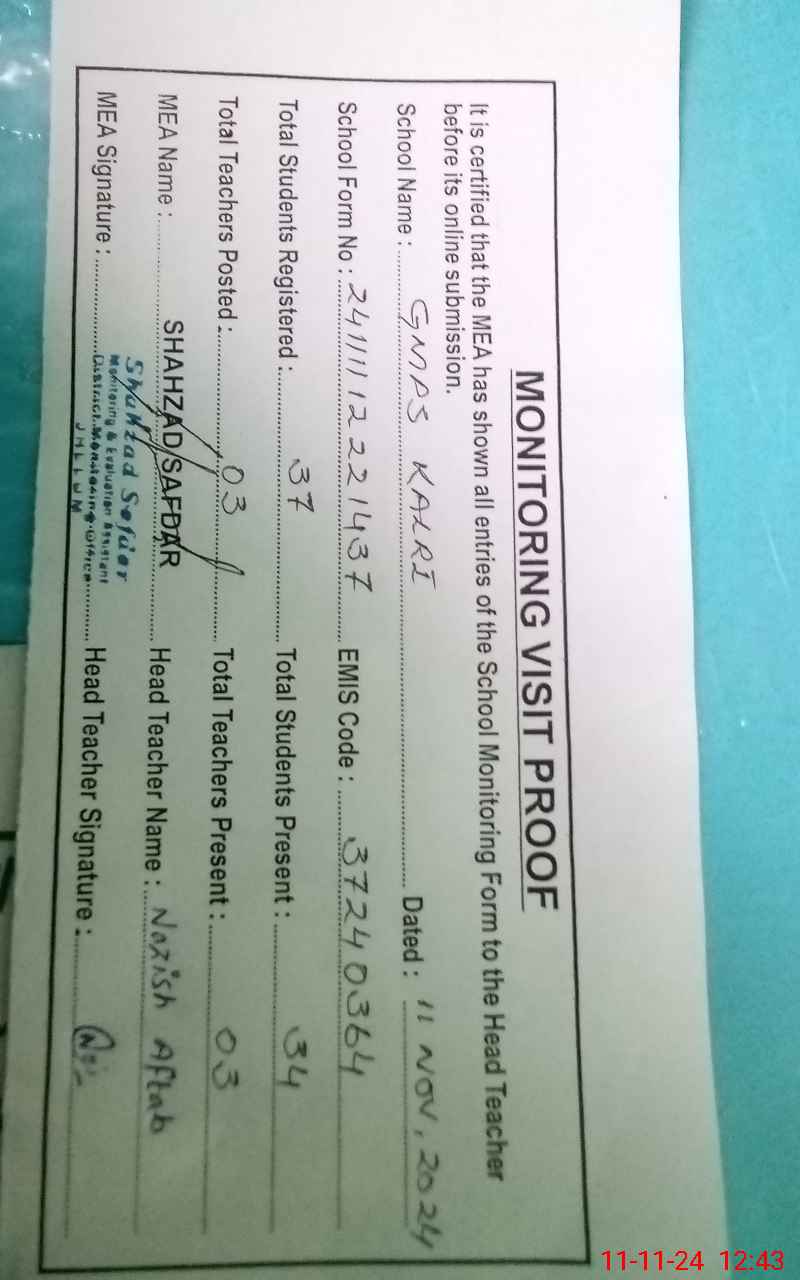 MONITORING VISIT PROOF
It is certified that the MEA has shown all entries of the School Monitoring Form to the Head Teacher
before its online submission.
School Name : GMPS KALRI Dated : 11 NOV, 2024
School Form No : 241111221437 EMIS Code : 37240364
Total Students Registered : 37 Total Students Present : 34
Total Teachers Posted : 03 Total Teachers Present : 03
MEA Name : SHAHZAD SAFDAR Head Teacher Name : Nazish Aftab
MEA Signature : Head Teacher Signature :
Shahzad Safdar
Monitoring & Evaluation Assistant
District Monitoring Office
JHELUM
11-11-24 12:43